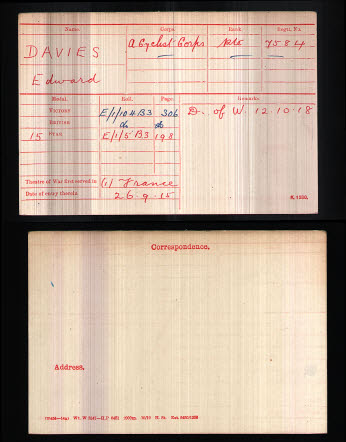 Name. Corps. Rank. Regtl. No.
DAVIES A Cyclist Corps Pte 7584
Edward
Medal. Roll. Page. Remarks.
Victory E/1/104B3 306 D. of W. 12.10.18
British do do
15 Star E/1/5 B3 198
Theatre of War first served in (1) France
Date of entry therein 26.9.15
K. 1380.
Correspondence.
Address.